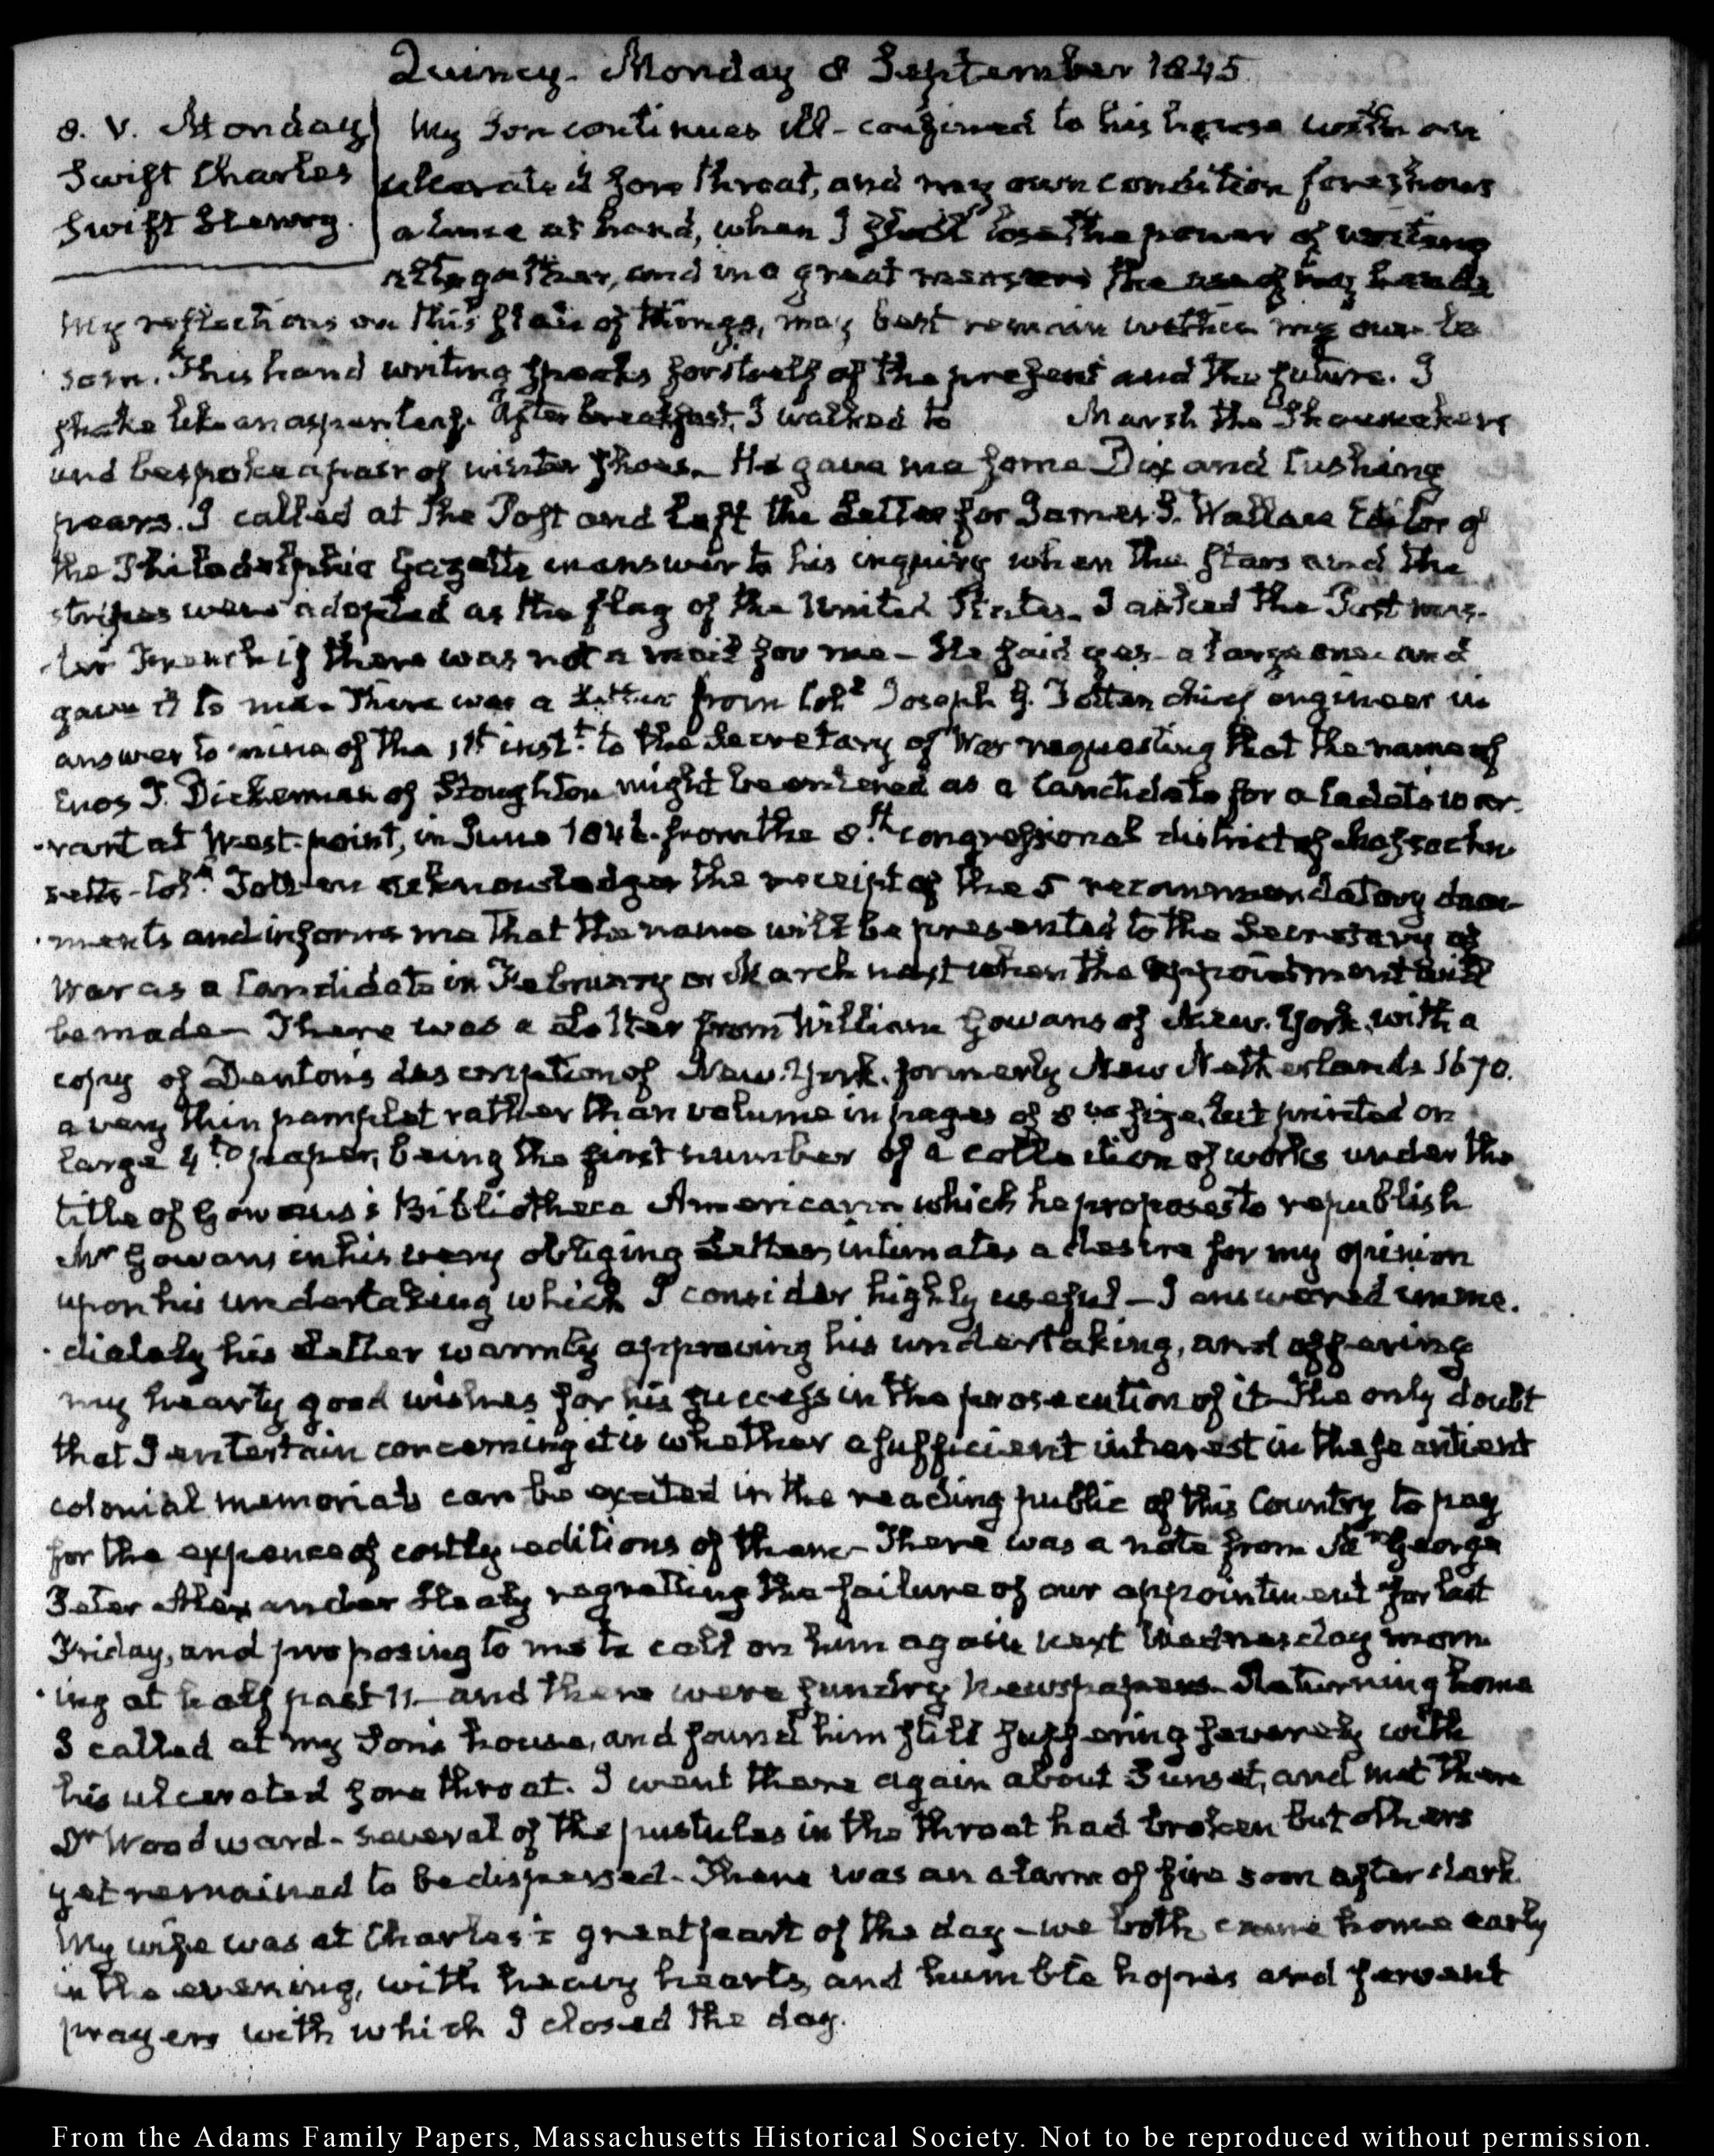 Quincy. Monday 8 September 1845.
8. V. Monday
Swift Charles
Swift Henry.
My Son continues ill - confined to his house with an
ulcerated sore throat, and my own condition foreshows
a time at hand, when I shall lose the power of writing
altogether, and in a great measure the use of my hands
My reflections on this state of things, may best remain within my own bo
som. This hand writing speaks for itself of the present and the future. I
shake like an aspen leaf. After breakfast, I walked to Marsh the Shoemakers
and bespoke a pair of winter shoes. He gave me some Dix and Cushing
pears. I called at the Post and left the Letter for James S. Wallace Editor of
the Philadelphia Gazette in answer to his inquiry when the stars and the
stripes were adopted as the flag of the United States. I asked the Post mas-
ter French if there was not a mail for me - He said yes - a large one and
gave it to me. There was a Letter from Coll. Joseph G. Totten chief engineer in
answer to mine of the 1st inst.t to the Secretary of War requesting that the name of
Enos T. Dickerman of Stoughton might be entered as a Candidate for a Cadets war-
rant at West-point, in June 1846. from the 8.th congressional district of Massachu
setts - Coll. Totten acknowledges the receipt of the 5 recommendatory docu-
ments and informs me that the name will be presented to the Secretary of
War as a Candidate in February or March next when the appointment will
be made - There was a Letter from William Gowans of New-York, with a
copy of Denton's description of New-York. formerly New Netherlands 1670.
a very thin pamflet rather than volume in pages of 8vo size, but printed on
large 4.to paper, being the first number of a collection of works under the
title of Gowans's Bibliotheca Americana which he proposes to republish
Mr Gowans in his very obliging Letter, intimates a desire for my opinion
upon his undertaking which I consider highly useful - I answered imme-
diately his Letter warmly approving his undertaking, and offering
my hearty good wishes for his success in the prosecution of it - The only doubt
that I entertain concerning it is whether a sufficient interest in these antient
colonial memorials can be excited in the reading public of this Country to pay
for the expence of costly editions of them - There was a note from Mr George
Peter Alexander Healy regretting the failure of our appointment for last
Friday, and proposing to me to call on him again next Wednesday morn
ing at half past 11 - and there were sundry Newspapers - Returning home
I called at my Son's house, and found him still suffering severely with
his ulcerated sore throat. I went there again about Sunset, and met there
Dr Woodward - several of the pustules in the throat had broken but others
yet remained to be dispersed - There was an alarm of fire soon after dark.
My wife was at Charles's great part of the day - we both came home early
in the evening, with heavy hearts, and humble hopes and fervent
prayers with which I closed the day.
From the Adams Family Papers, Massachusetts Historical Society. Not to be reproduced without permission.